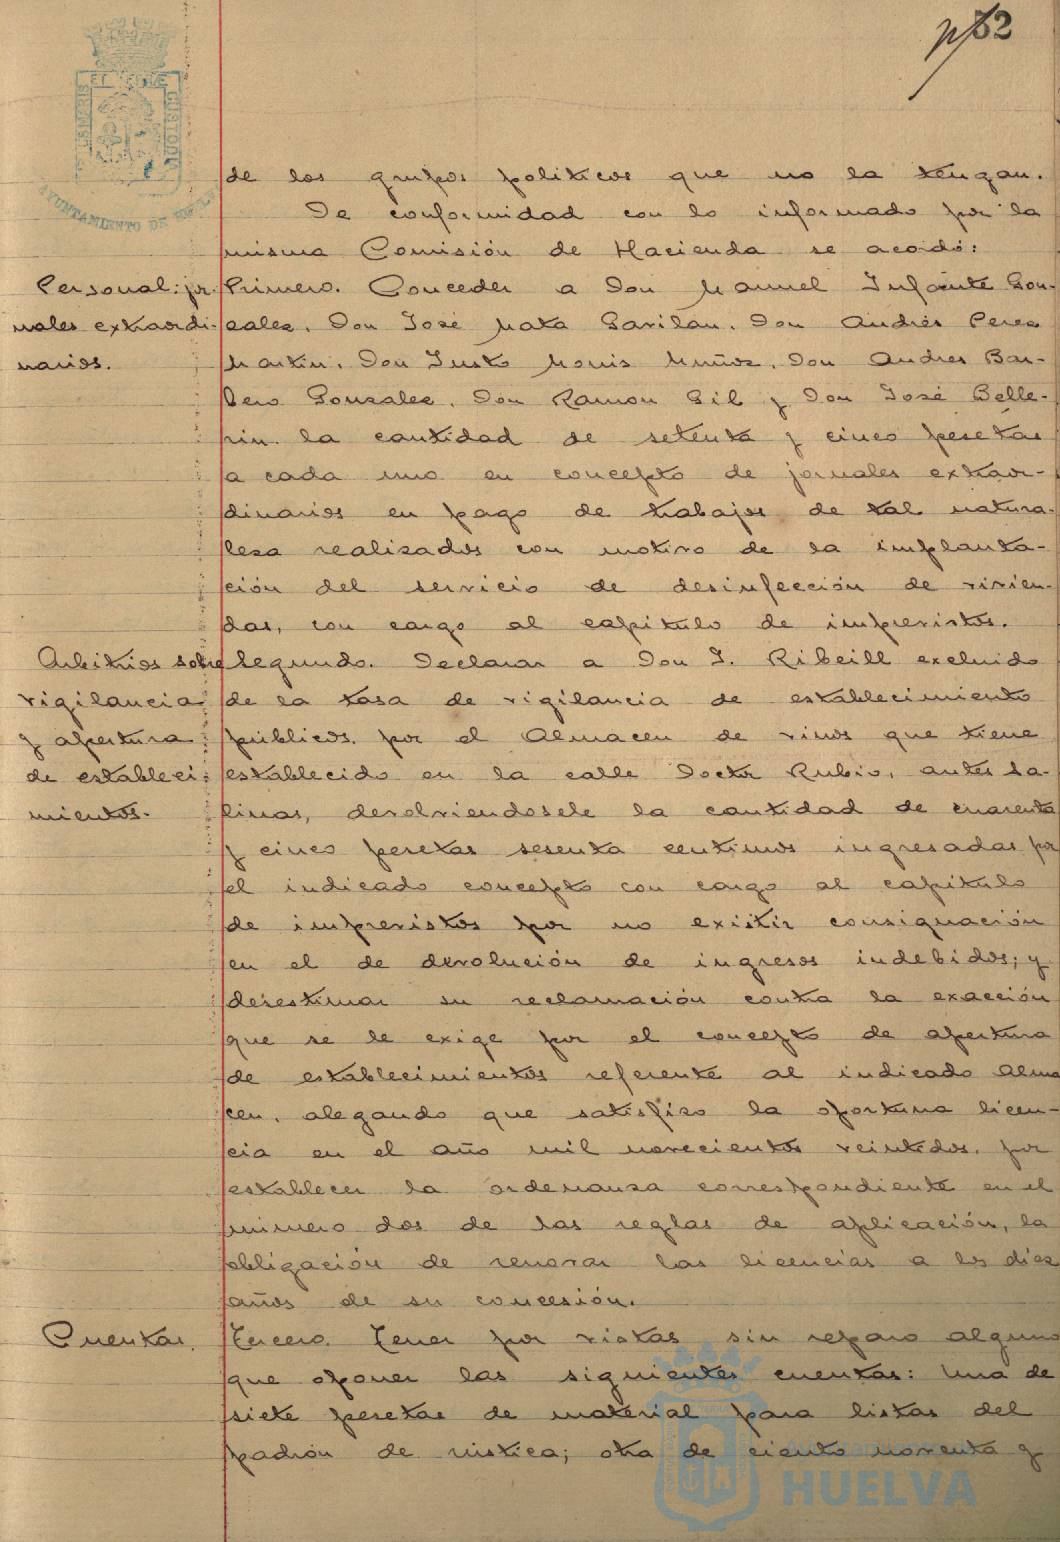 p/32
PORTUS MARIS ET TERRE CUSTODIA
AYUNTAMIENTO DE HUELVA
de los grupos politicos que no la tengan.
De conformidad con lo informado por la
misma Comisión de Hacienda se acordó:
Personal: jor-
nales extraordi-
narios.
Primero. Conceder a Don Manuel Infante Gon-
zalez, Don José Mata Gavilan, Don Andrés Perea
Martin, Don Justo Monis Muñoz, Don Andres Bar-
bero Gonzalez, Don Ramon Gil y Don José Belle-
rin la cantidad de setenta y cinco pesetas
a cada uno en concepto de jornales extraor-
dinarios en pago de trabajos de tal natura-
leza realizados con motivo de la implanta-
ción del servicio de desinfección de vivien-
das, con cargo al capitulo de imprevistos.
Arbitrios sobre
vigilancia
y apertura
de estableci-
mientos.
Segundo. Declarar a Don J. Ribeill excluido
de la tasa de vigilancia de establecimiento
públicos, por el Almacen de vinos que tiene
establecido en la calle Doctor Rubio, antes Sa-
linas, devolviendosele la cantidad de cuarenta
y cinco pesetas sesenta centimos ingresadas por
el indicado concepto con cargo al capitulo
de imprevistos por no existir consignación
en el de devolución de ingresos indebidos; y
desestimar su reclamación contra la exacción
que se le exige por el concepto de apertura
de establecimientos referente al indicado alma
cen, alegando que satisfizo la oportuna licen-
cia en el año mil novecientos veintidos, por
establecer la ordenanza correspondiente en el
número dos de las reglas de aplicación, la
obligación de renovar las licencias a los diez
años de su concesión.
Cuentas.
Tercero. Tener por vistas sin reparo alguno
que oponer las siguientes cuentas: Una de
siete pesetas de material para listas del
padrón de rústica; otra de ciento noventa y
HUELVA